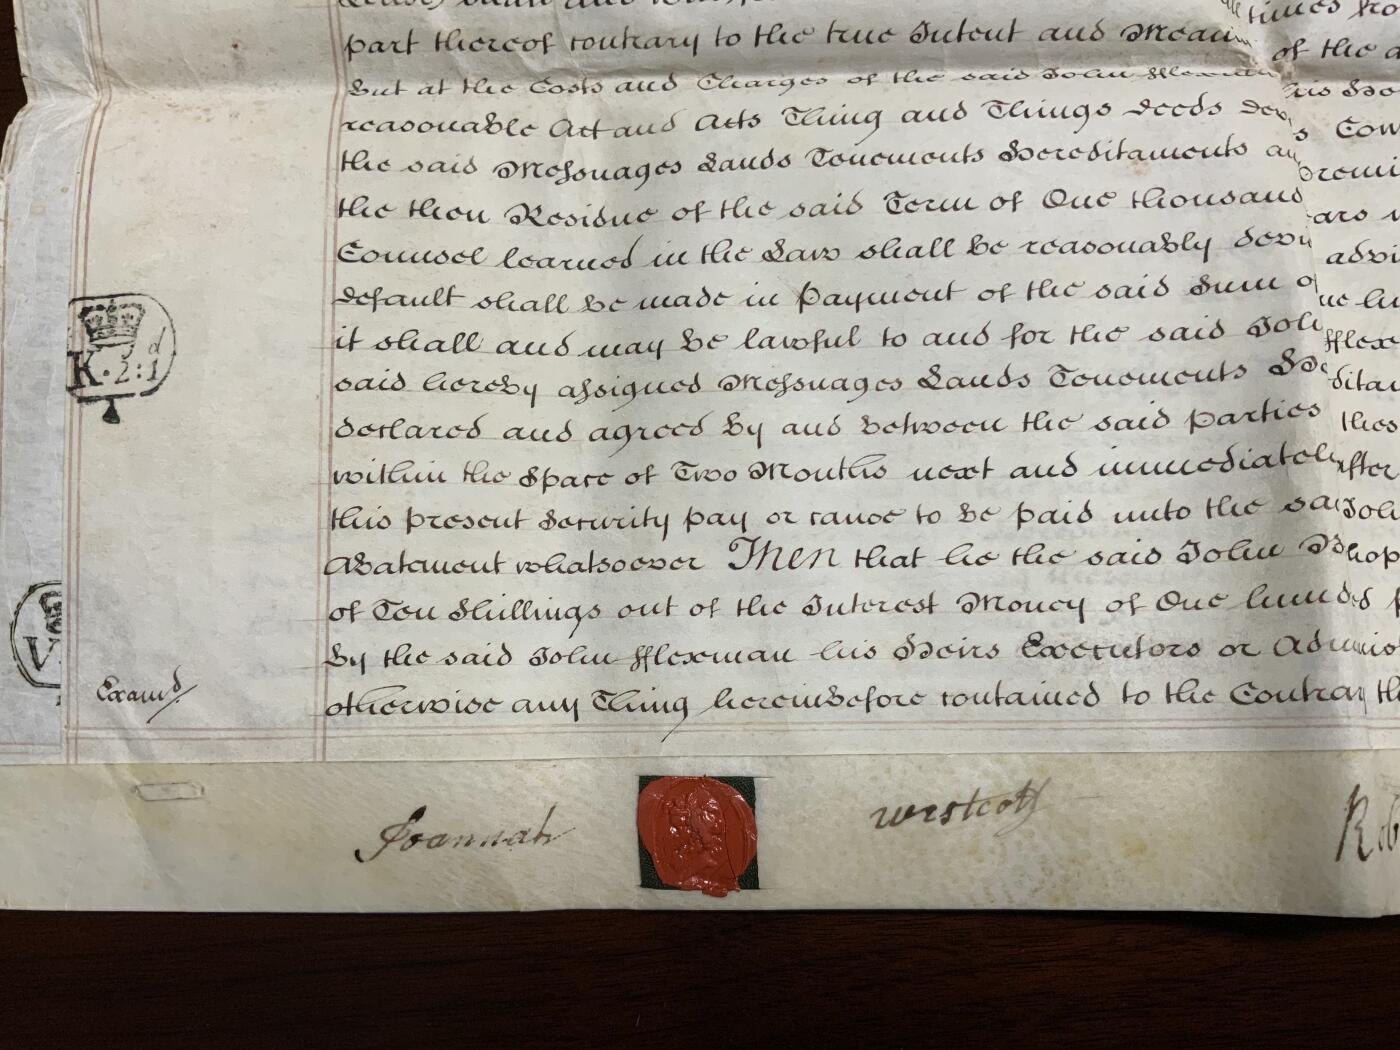 part thereof contrary to the true Intent and Mean
of the a
But at the Costs and Charges of the said John fflexman
his He
reasonable Act and Acts Thing and Things Deeds Dev
s Con
the said Meſsuages Lands Tenements Hereditaments an
premi
the then Residue of the said Term of One thousand
ears
Counsel learned in the Law shall be reasonably devi
advi
default shall be made in Payment of the said Sum o
it shall and may be lawful to and for the said Joh
fflex
said hereby aſsigned Meſsuages Lands Tenements He
ditam
declared and agreed By and Between the said Parties
thes
within the Space of Two Months next and immediately
after
this present Security pay or cause to be paid unto the sa
Joh
Abatement whatsoever Then that he the said John Bishop
of Ten Shillings out of the Interest Money of One hundred
By the said John fflexman his Heirs Executors or Adminis
otherwise any Thing hereinbefore contained to the Contrary th
K. 2:1 d
V
Examd.
Joannah
westcott
Rob